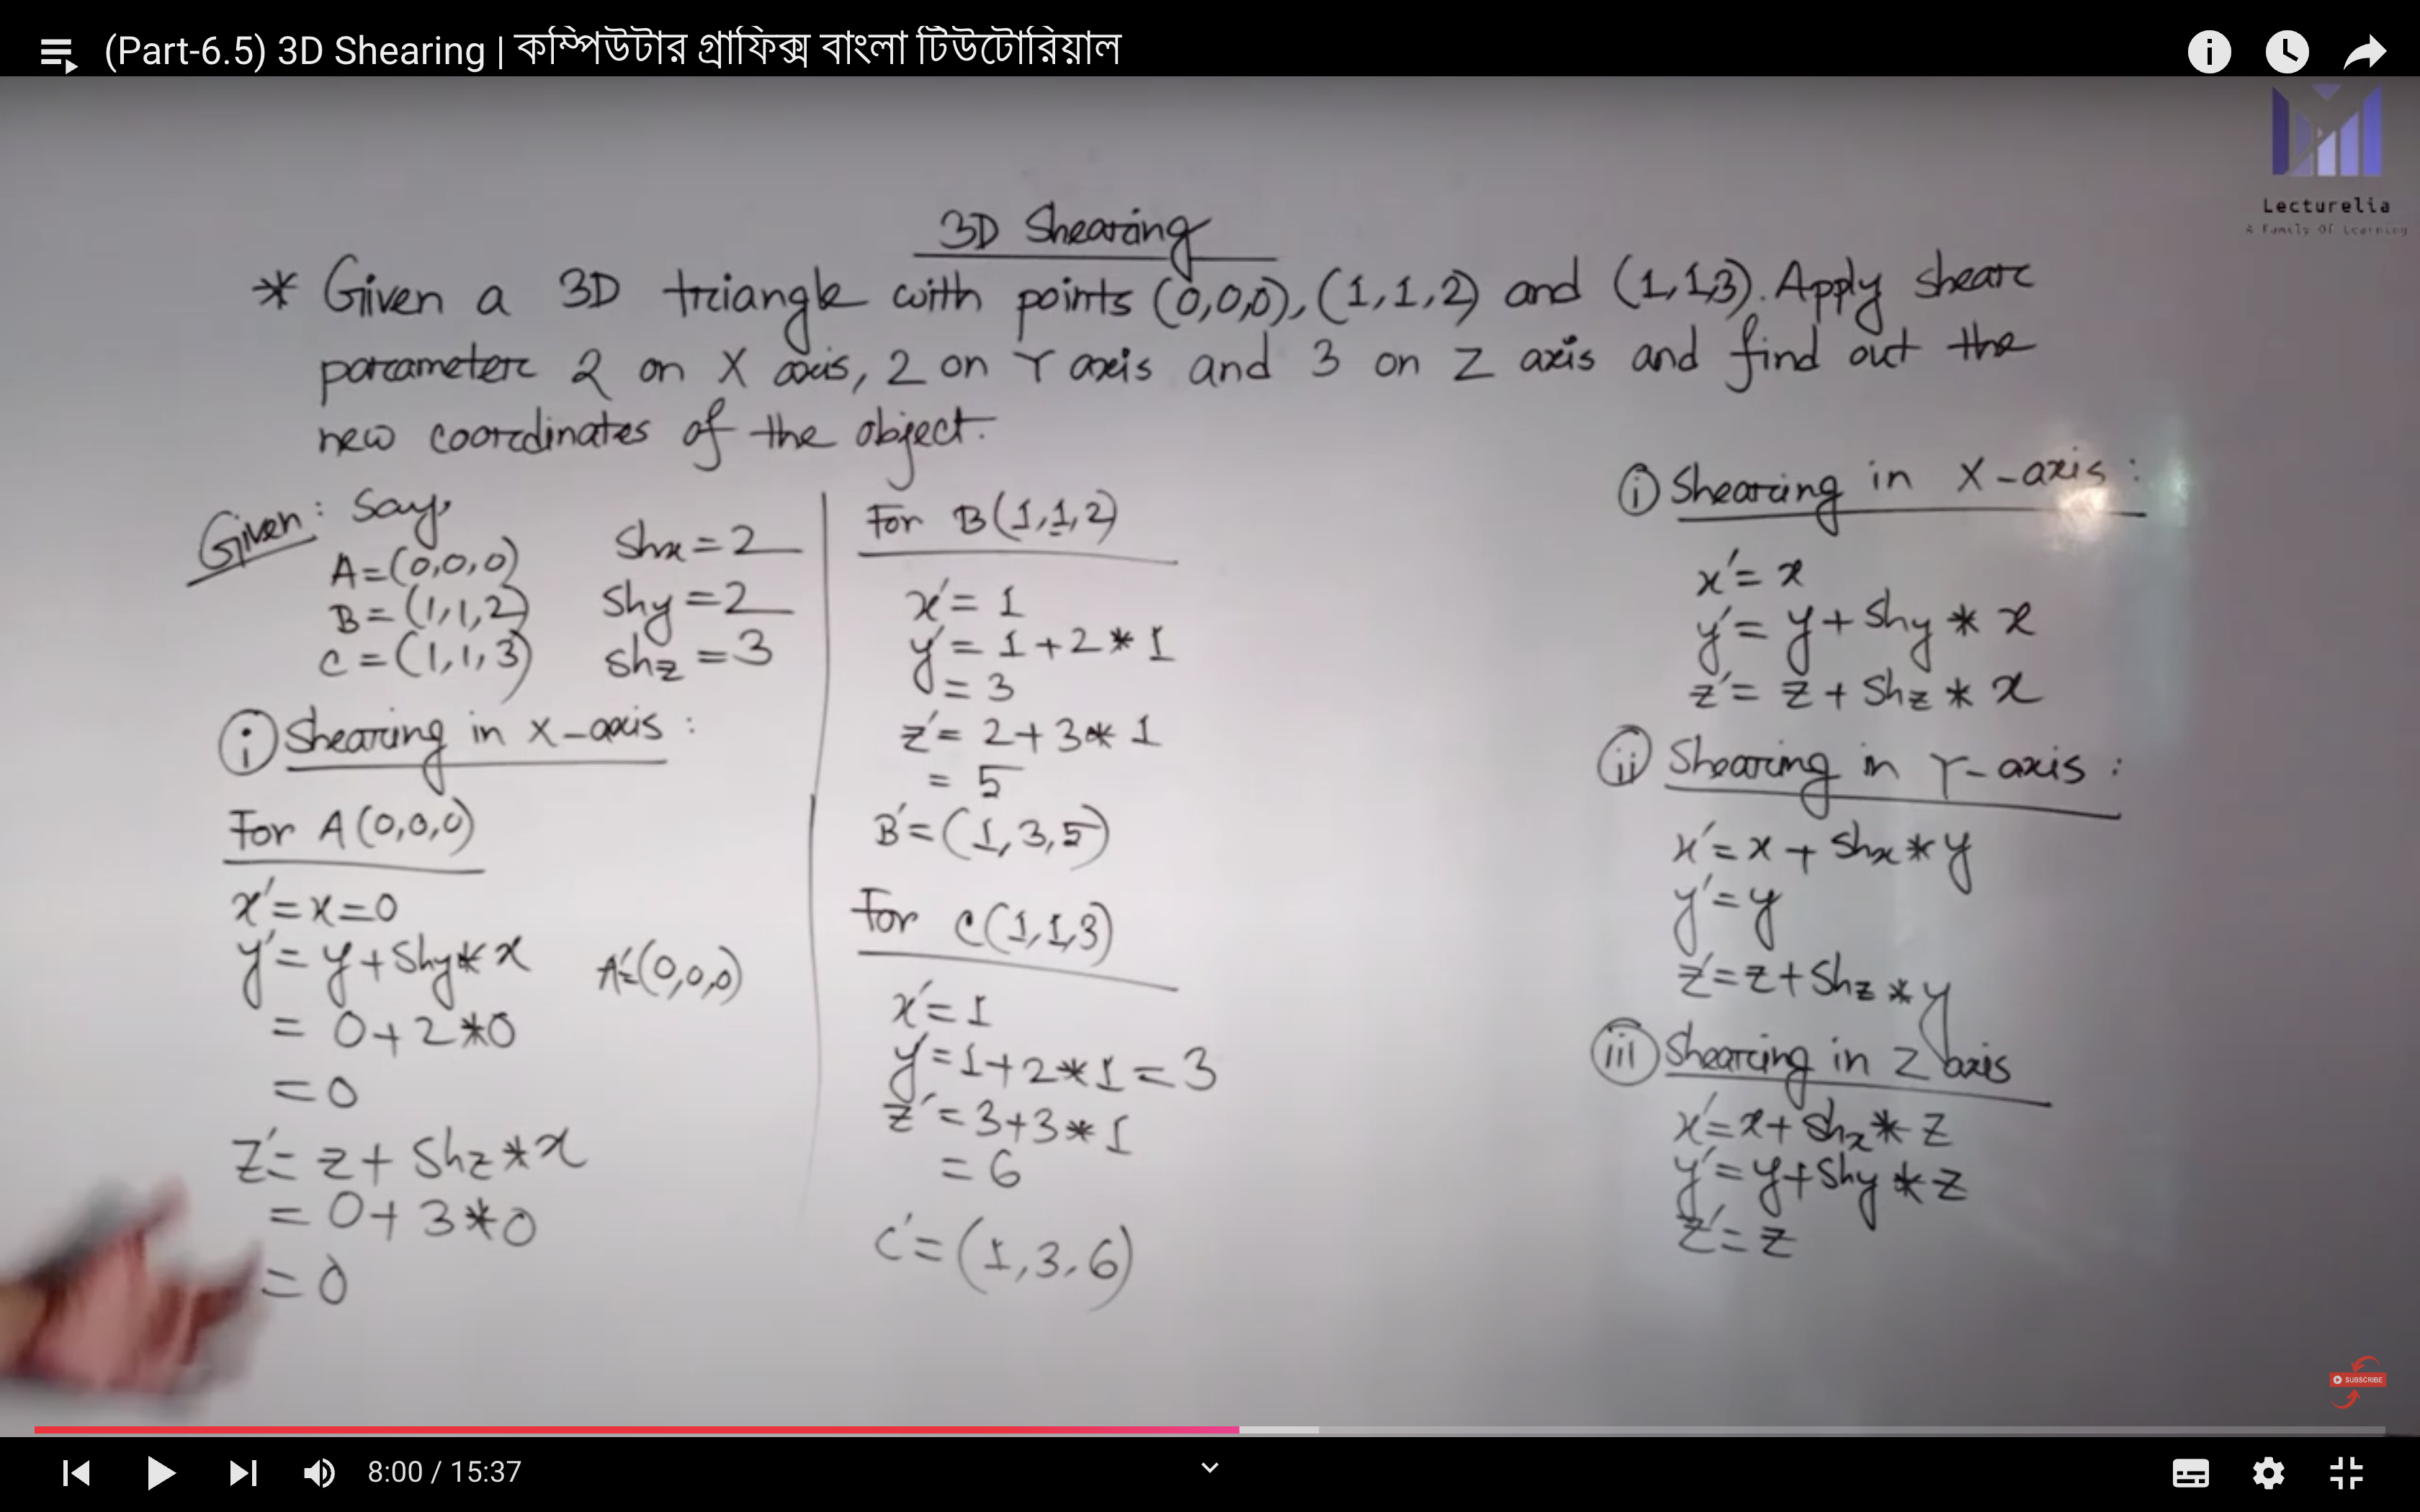 (Part-6.5) 3D Shearing | কম্পিউটার গ্রাফিক্স বাংলা টিউটোরিয়াল
Lecturelia
A Family Of Learning
3D Shearing
* Given a 3D triangle with points (0,0,0), (1,1,2) and (1,1,3). Apply shear
parameter 2 on X axis, 2 on Y axis and 3 on Z axis and find out the
new coordinates of the object.
Given: Say,
A=(0,0,0)
B=(1,1,2)
C=(1,1,3)
Shx=2
Shy=2
Shz=3
(i) Shearing in X-axis:
For A(0,0,0)
x'=x=0
y'=y+Shy*x
=0+2*0
=0
z'=z+Shz*x
=0+3*0
=0
A'=(0,0,0)
For B(1,1,2)
x'=1
y'=1+2*1
=3
z'=2+3*1
=5
B'=(1,3,5)
For C(1,1,3)
x'=1
y'=1+2*1=3
z'=3+3*1
=6
C'=(1,3,6)
(i) Shearing in X-axis:
x'=x
y'=y+Shy*x
z'=z+Shz*x
(ii) Shearing in Y-axis:
x'=x+Shx*y
y'=y
z'=z+Shz*y
(iii) Shearing in Z axis
x'=x+Shx*z
y'=y+Shy*z
z'=z
SUBSCRIBE
8:00 / 15:37